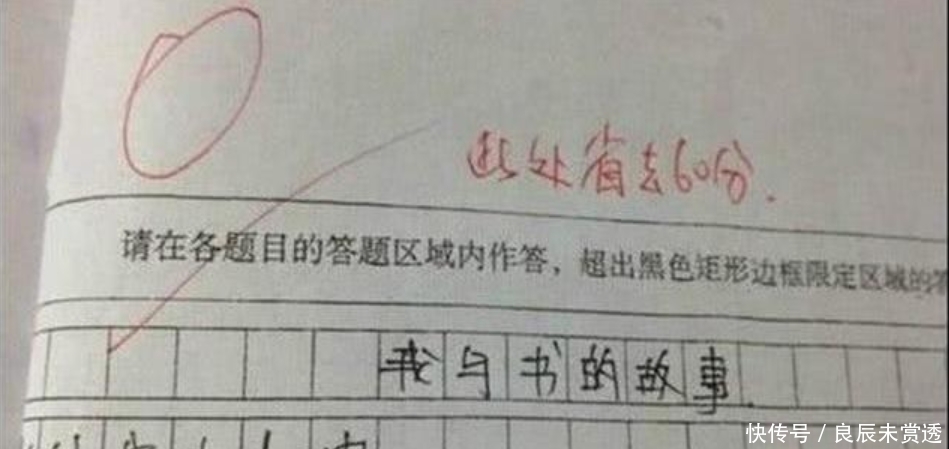 0
此处省去60分.
请在各题目的答题区域内作答，超出黑色矩形边框限定区域的答
我与书的故事
快传号/良辰未赏透